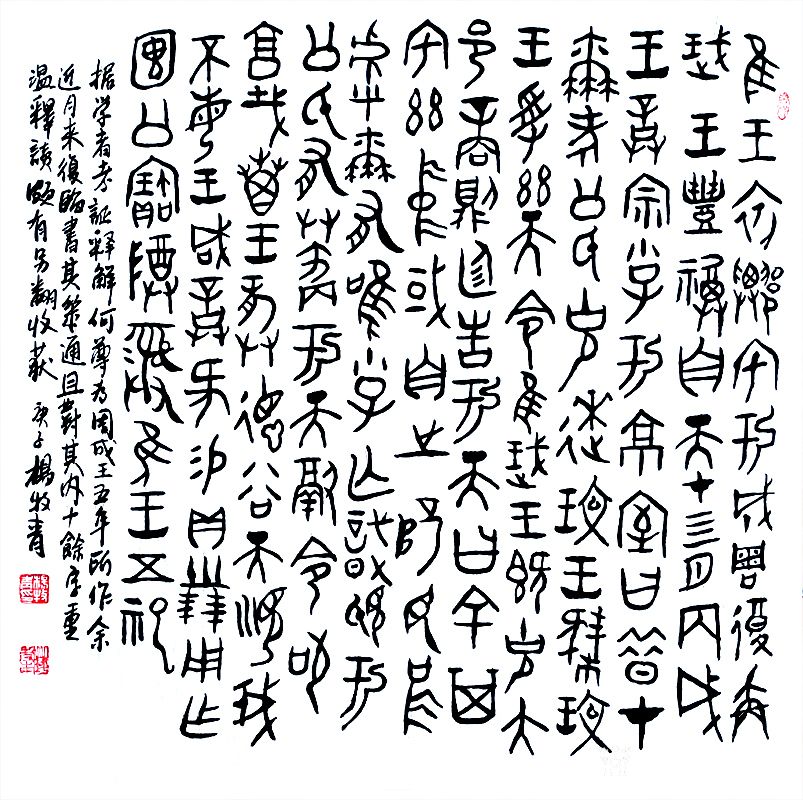 隹王初遷宅于成周復爯
珷王豊祼自天才四月丙戌
王誥宗小子于京室曰昔才
爾考公氏克逨玟王肆玟
王受茲大令隹珷王既克大
邑商則廷告于天曰余其
宅茲中或自之乂民烏
虖爾有唯小子亡識視于
公氏有爵于天徹令苟
享哉叀王龏德谷天順我
不敏王咸誥何易貝卅朋用乍
圂公寶尊彝隹王五祀
据学者考証釋解何尊为周成王五年所作余
近月来復臨書其通且對其内十餘字重
温釋読頗有另翻收获 庚子楊牧青